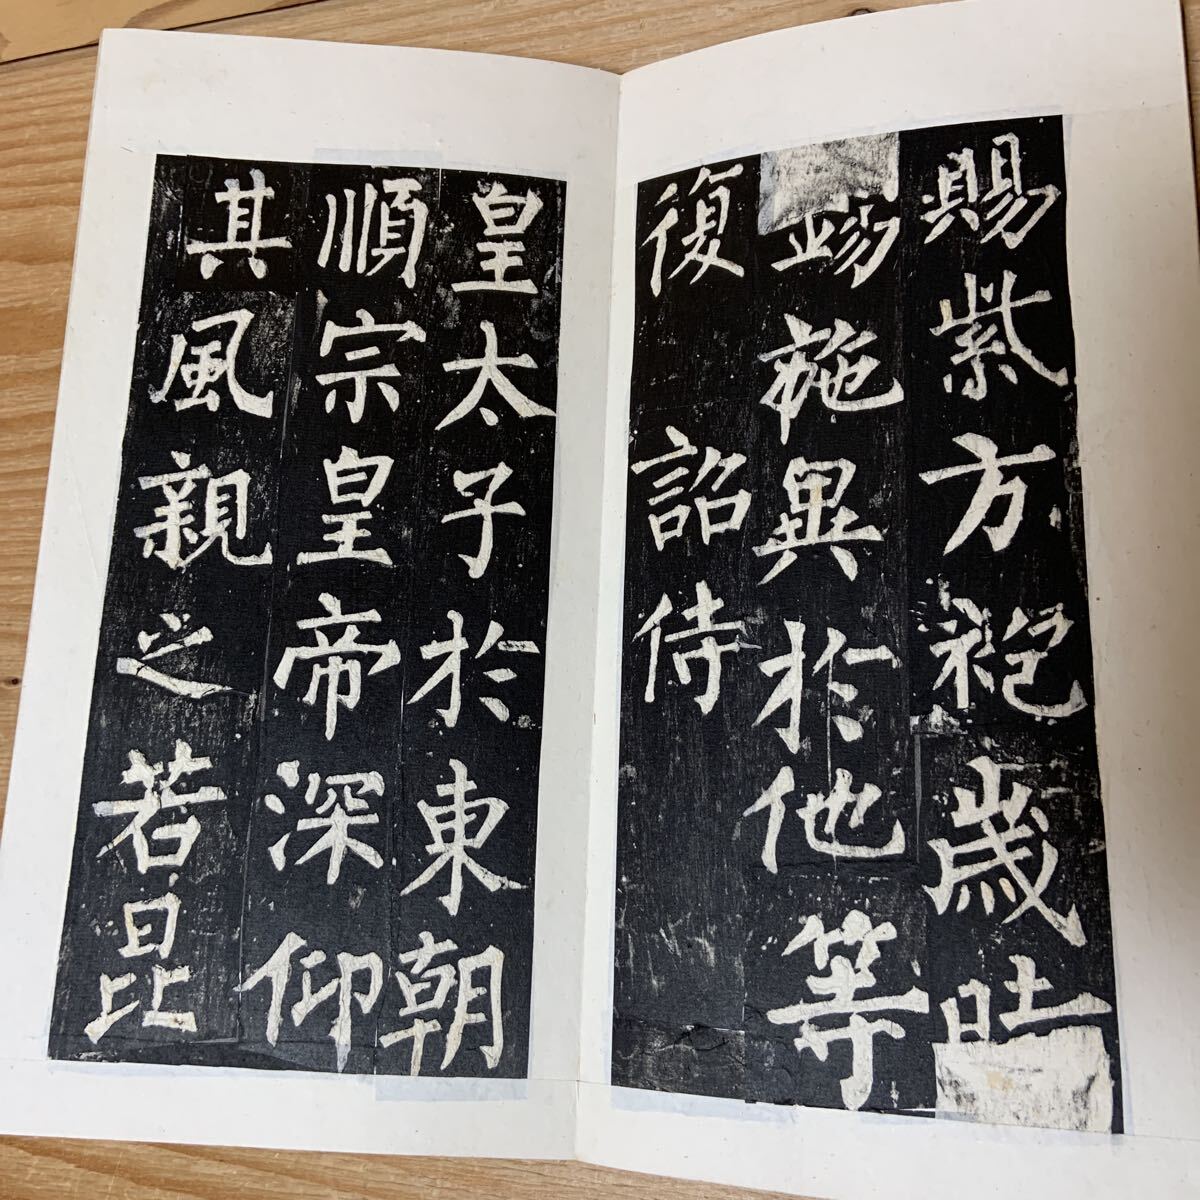 賜紫方袍歲時
錫施異於他等
復詔侍
皇太子於東朝
順宗皇帝深仰
其風親之若昆